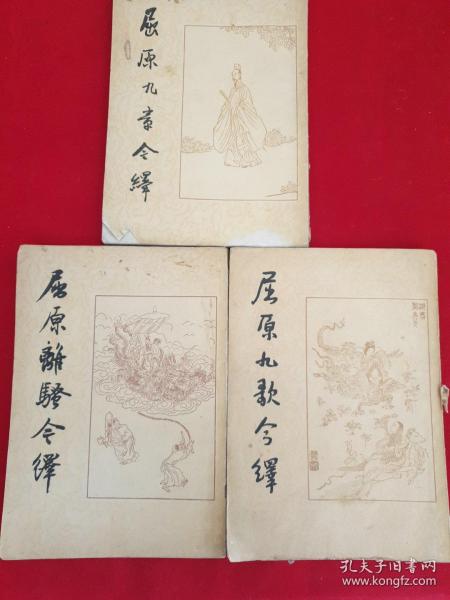 屈原九章今绎
屈原離騷今绎
屈原九歌今绎
孔夫子旧书网
www.kongfz.com